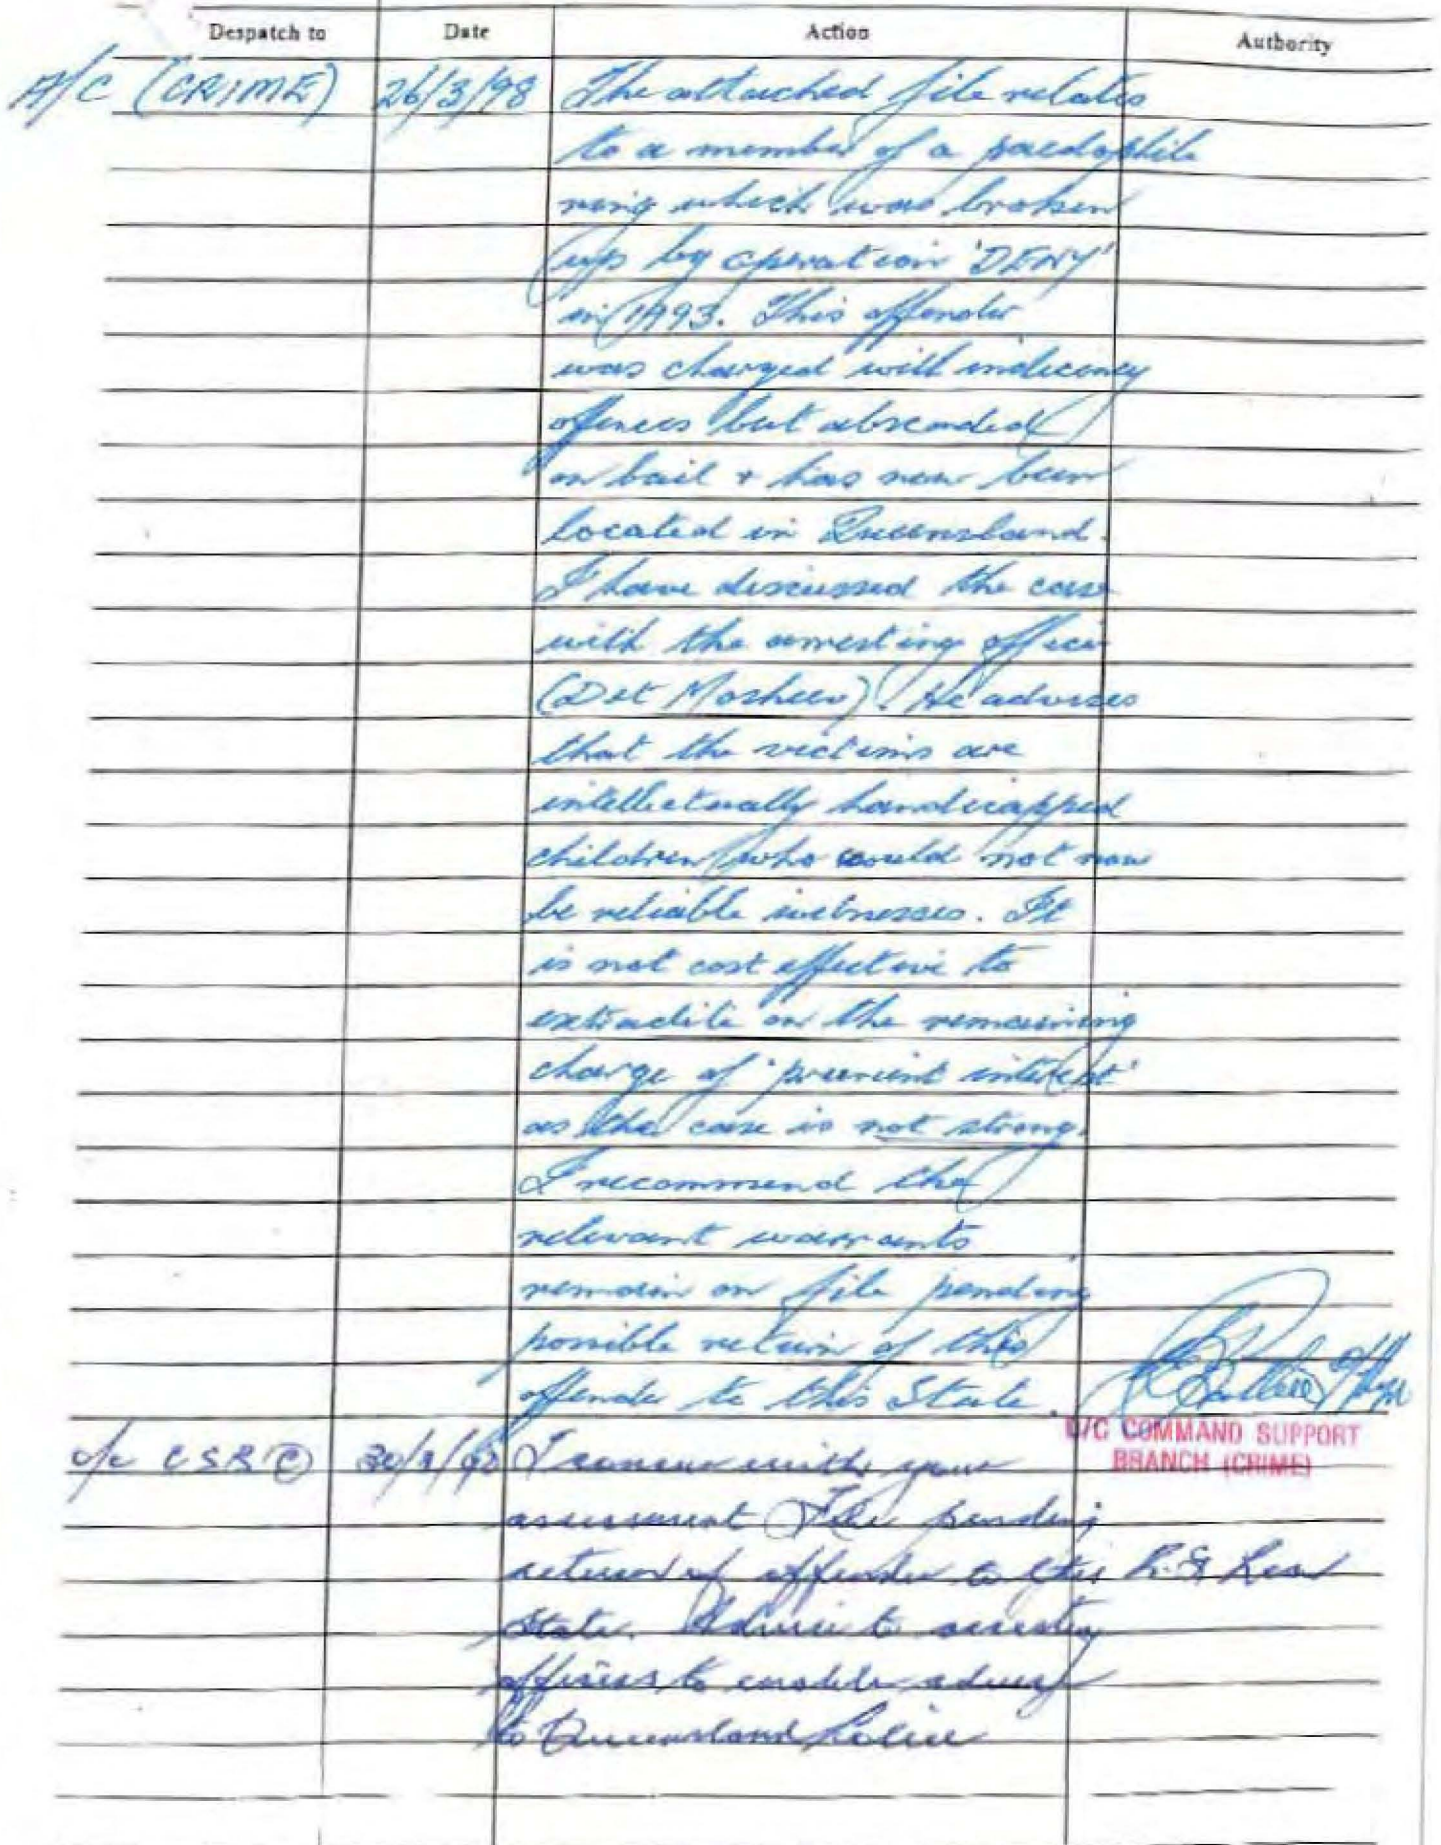 Despatch to Date Action Authority
A/C (CRIME) 26/3/98 The attached file relates
to a member of a paedophile
ring which was broken
up by operation 'DENY'
in 1993. This offender
was charged with indecency
offences but absconded
on bail + has now been
located in Queensland.
I have discussed the case
with the arresting officer
(Det Mosheev). He advises
that the victims are
intellectually handicapped
children who would not now
be reliable witnesses. It
is not cost effective to
extradite on the remaining
charge of 'prurient interest'
as the case is not strong.
I recommend the
relevant warrants
remain on file pending
possible return of this
offender to this State.
O/C COMMAND SUPPORT
BRANCH (CRIME)
o/c CSB(C) 30/3/98 I concur with your
assessment File pending
return of offender to this
State. Advise to arresting
officers to enable advice
to Queensland Police